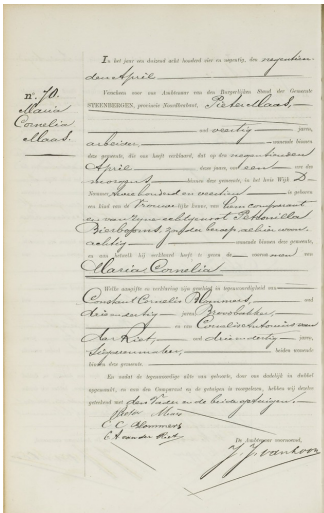 nº. 70.
Maria
Cornelia
Maas.
In het jaar een duizend acht honderd zes en negentig, den negentienden April
verscheen voor ons Ambtenaar van den Burgerlijken Stand der Gemeente
STEENBERGEN, provincie Noordbrabant, Pieter Maas,
oud veertig jaren,
arbeider, wonende binnen
deze gemeente, die ons heeft verklaard, dat op den negentienden
April dezes jaars, te een ure des
morgens, binnen deze gemeente, in het huis Wijk D
Nummer honderd en is geboren
een kind van de Vrouwelijke kunne, van hem comparant
en van zijne echtgenoot Petronilla
zonder beroep, alhier woon-
achtig wonende binnen deze gemeente,
en aan hetwelk hij verklaard heeft te geven de voornamen van
Maria Cornelia
Welke aangifte en verklaring zijn geschied in tegenwoordigheid van
Constant Cornelis Blommers, oud
drieendertig jaren, Broodbakker,
en van Cornelis Antonius van
der Riet, oud drieendertig jaren,
beiden wonende
binnen deze gemeente.
En nadat de tegenwoordige akte van geboorte, door ons dadelijk in dubbel
opgemaakt, en aan den Comparant en de getuigen is voorgelezen, hebben wij dezelve
geteekend met den Vader en de beide getuigen.
Pieter Maas
C. C. Blommers
C A van der Riet
De Ambtenaar voornoemd,